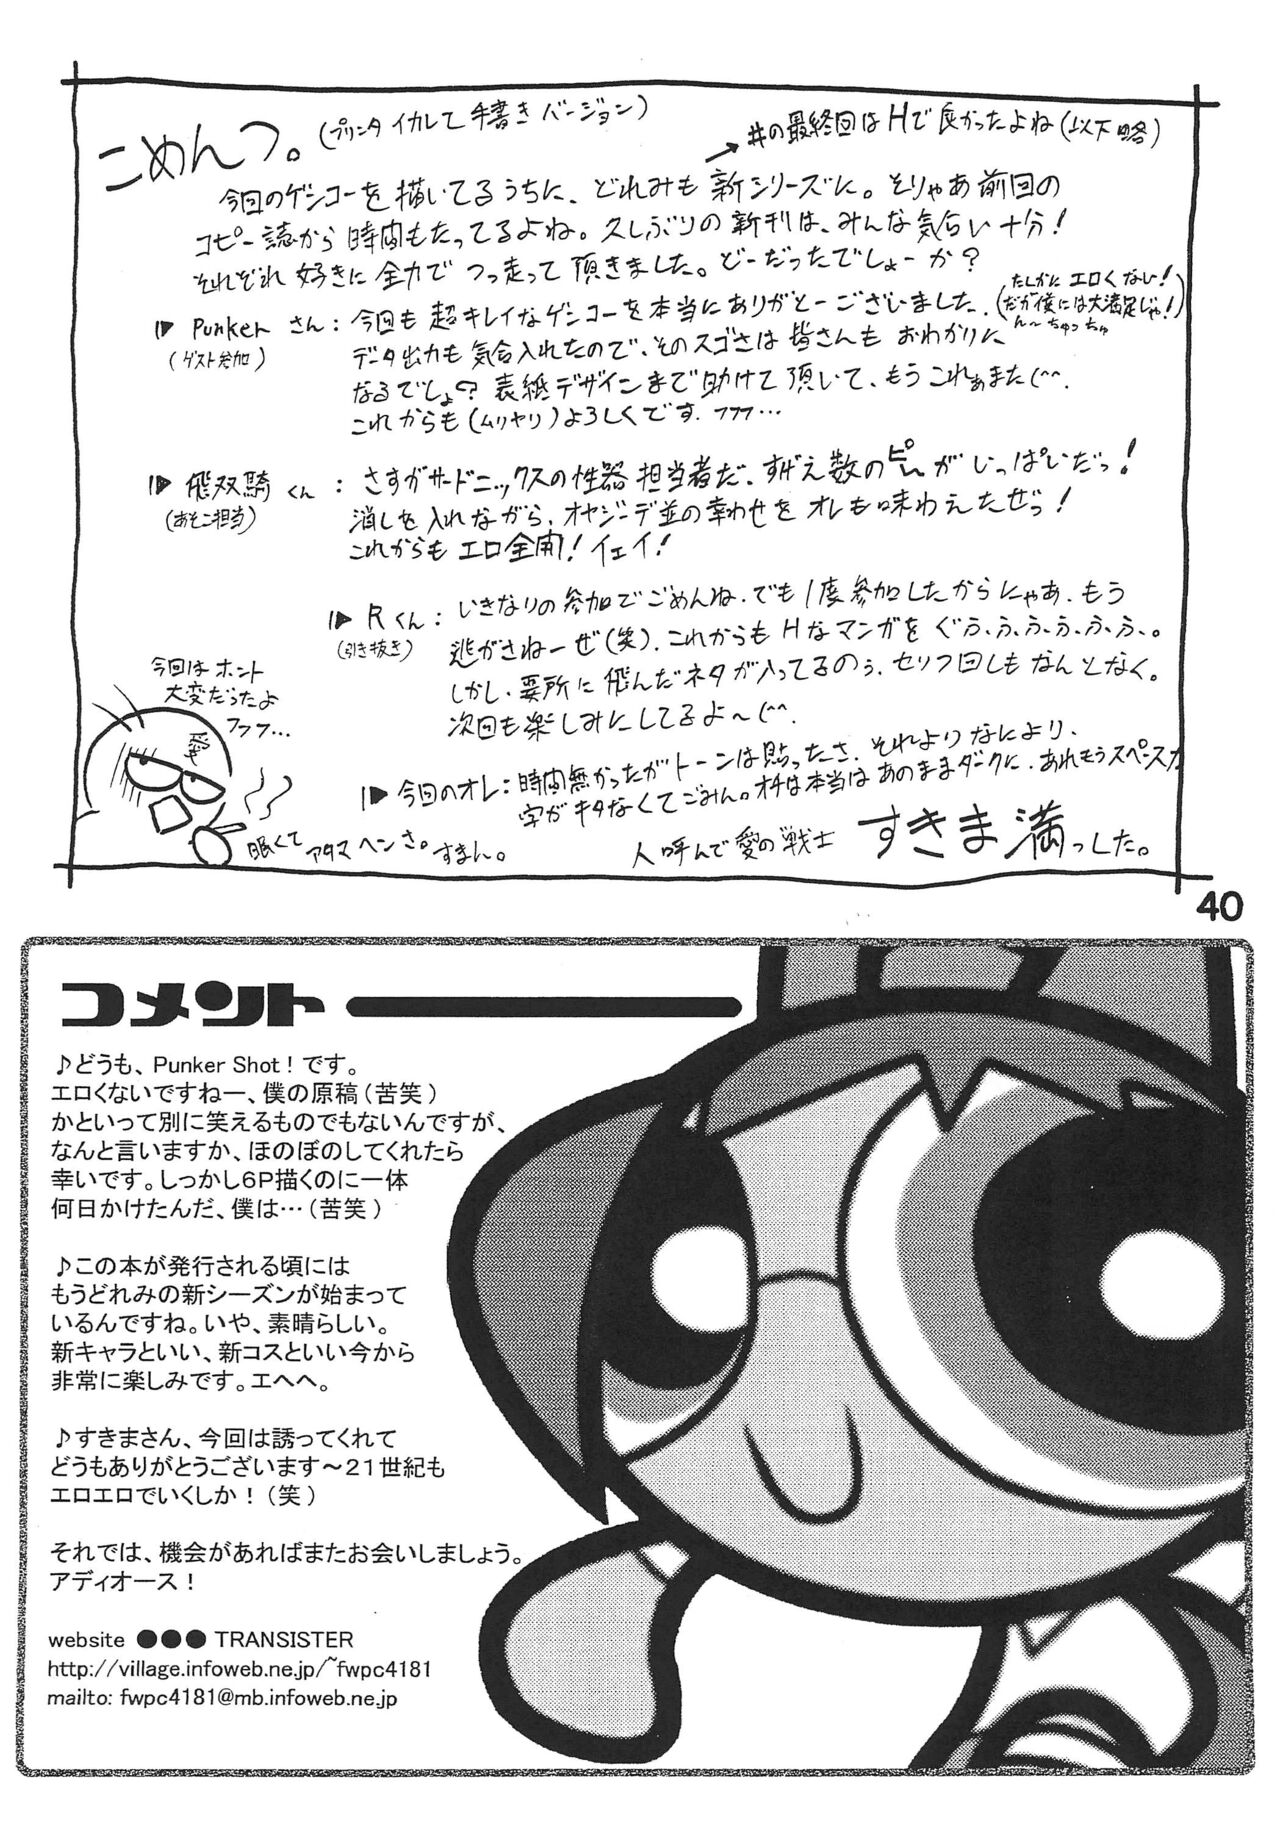 こめんつ。(プリンタ イカレて 手書き バージョン)
#の最終回は Hで 良かったよね(以下略)
今回のゲンコーを描いてるうちに、どれみも 新シリーズに。そりゃあ前回の
コピー誌から 時間もたってるよね。久しぶりの新刊は、みんな気合い十分!
それぞれ 好きに 全力で つっ走って 頂きました。どーだったでしょーか?
(たしかに エロくない!
だが僕には大満足じゃ!)
ん〜ちゅっちゅ
Punker さん:今回も 超キレイなゲンコーを本当にありがとーございました.
(ゲスト参加)
データ出力も 気合入れたので、そのスゴさは 皆さんも おわかりに
なるでしょ?表紙デザインまで助けて頂いて、もう これぁまた(^^.
これからも(ムリヤリ)よろしくです. フフフ…
飛双騎くん:さすがサードニックスの性器担当者だ、すげえ数のピーがいっぱいだっ!
(あそこ担当)
消しを入れながら、オヤジーデ並の幸わせを オレも味わえたぜっ!
これからも エロ全開!イェイ!
Rくん:いきなりの参加でごめんね.でも1度参加したからにゃあ.もう
(引き抜き)
逃がさねーぜ(笑).これからも Hなマンガを ぐふ、ふ、ふ、ふ、ふ、ふ、。
しかし、要所に 飛んだネタが入ってるのぅ、セリフ回しもなんとなく。
次回も楽しみにしてるよ〜(^^.
今回はホント
大変だったよ
フフフ…
愛
今回のオレ:時間無かったがトーンは貼ったさ.それより なにより、
字がキタなくてごみん。オチは本当はあのままダークに、あれもうスペースが
眠くて アタマ ヘンさ。すまん。
人呼んで愛の戦士 すきま満っした。
40
コメント
♪どうも、Punker Shot!です。
エロくないですねー、僕の原稿(苦笑)
かといって別に笑えるものでもないんですが、
なんと言いますか、ほのぼのしてくれたら
幸いです。しっかし6P描くのに一体
何日かけたんだ、僕は…(苦笑)
♪この本が発行される頃には
もうどれみの新シーズンが始まって
いるんですね。いや、素晴らしい。
新キャラといい、新コスといい今から
非常に楽しみです。エヘヘ。
♪すきまさん、今回は誘ってくれて
どうもありがとうございます〜21世紀も
エロエロでいくしか!(笑)
それでは、機会があればまたお会いしましょう。
アディオース!
website ●●● TRANSISTER
http://village.infoweb.ne.jp/~fwpc4181
mailto: fwpc4181@mb.infoweb.ne.jp